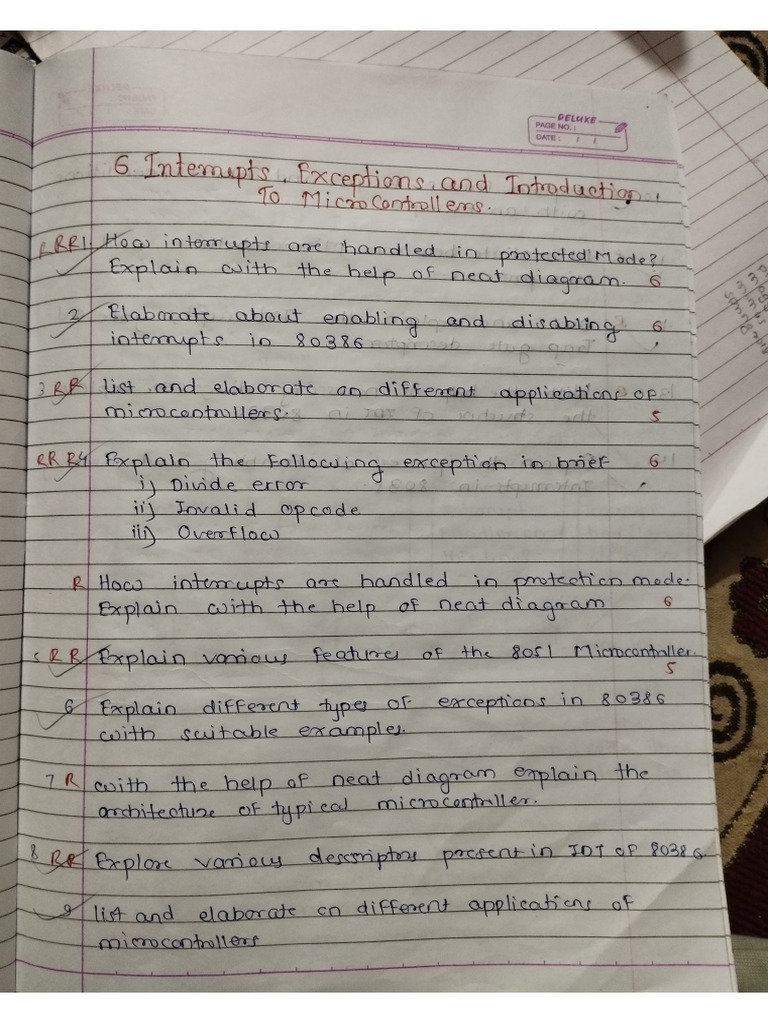 DELUXE
PAGE NO.:
DATE: / /
6 Interrupts, Exceptions, and Introduction
To Microcontrollers.
RRR1. How interrupts are handled in protected Mode?
Explain with the help of neat diagram. 6
2 Elaborate about enabling and disabling 6
interrupts in 80386
3 RR list and elaborate on different applications of
microcontrollers. 5
RR R4 Explain the Following exception in brief 6
i) Divide error
ii) Invalid opcode
iii) Overflow
R How interrupts are handled in protection mode.
Explain with the help of neat diagram 6
5 R R Explain various features of the 8051 Microcontroller.
5
6 Explain different types of exceptions in 80386
with suitable examples.
7 R with the help of neat diagram explain the
architecture of typical microcontroller.
8 RR Explore various descriptors present in IDT of 80386
9 list and elaborate on different applications of
microcontrollers